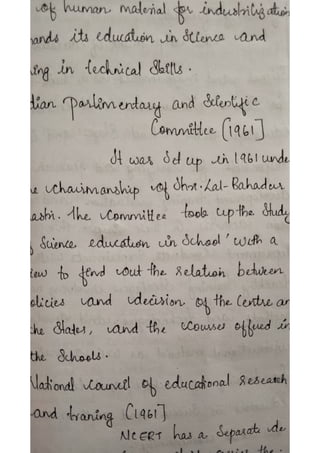 of human material for industrilization
ands its education in Science and
ing in technical Skills.
dian Parlimendary and Scientific
Committee [1961]
It was Set up in 1961 unde
e chairmanship of Shri. Lal-Bahadur
astri. The committee took up the Study
Science education in School' with a
iew to find out the relation between
olicies and decision of the Centre an
he States, and the courses offered in
the Schools.
National council of educational Research
and traning [1961]
NCERT has a Separate de